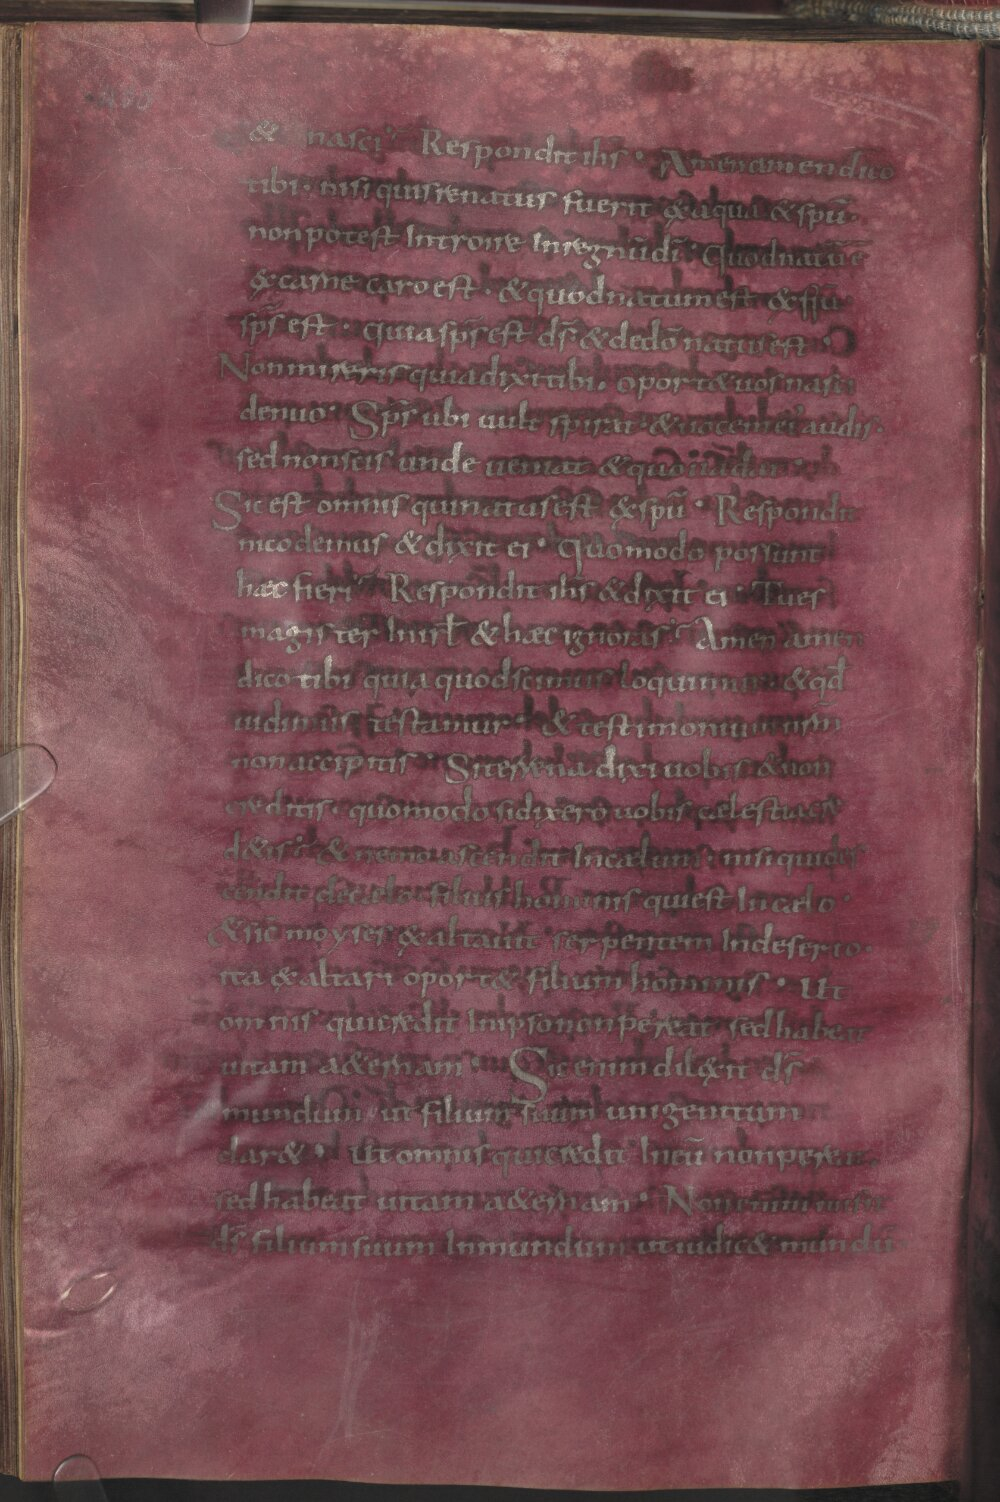 & nasci Respondit ihs · Amen amen dico
tibi · nisi quis renatus fuerit & aqua & spū ·
non potest Introire In regnū dī · Quod natū ē
& carne caro est · & quod natum est & spū
sps est · quia sps est ds & de dō natus est ·
Non mireris quia dixi tibi · oport& uos nasci
denuo · Sps ubi uult spirat · & uocem ei audis ·
sed non scis unde ueniat & quo uadat ·
Sic est omnis qui natus est & spū · Respondit
nicodemus & dixit ei · Quomodo possunt
haec fieri Respondit ihs & dixit ei · Tu es
magister In isrł & haec ignoras Amen amen
dico tibi quia quod scimus loquimur & qđ
uidimus testamur · & testimonium nrm
non accipitis · Si terrena dixi uobis & non
creditis · quomodo si dixero uobis caelestia cre
d&is & nemo ascendit In caelum · nisi qui des
cendit de caelo · filius hominis qui est In caelo ·
& sic moyses &altauit serpentem In deserto ·
ita &altari oport& filium hominis · Ut
omnis qui credit In ipso non pereat sed habeat
uitam a&ernam · Sic enim dil&xit ds
mundum ut filium suum unigenitum
dar& · Ut omnis qui credit In eū non pereat ·
sed habeat uitam a&ernam · Non enim misit
ds filium suum In mundum ut iudic& mundū ·